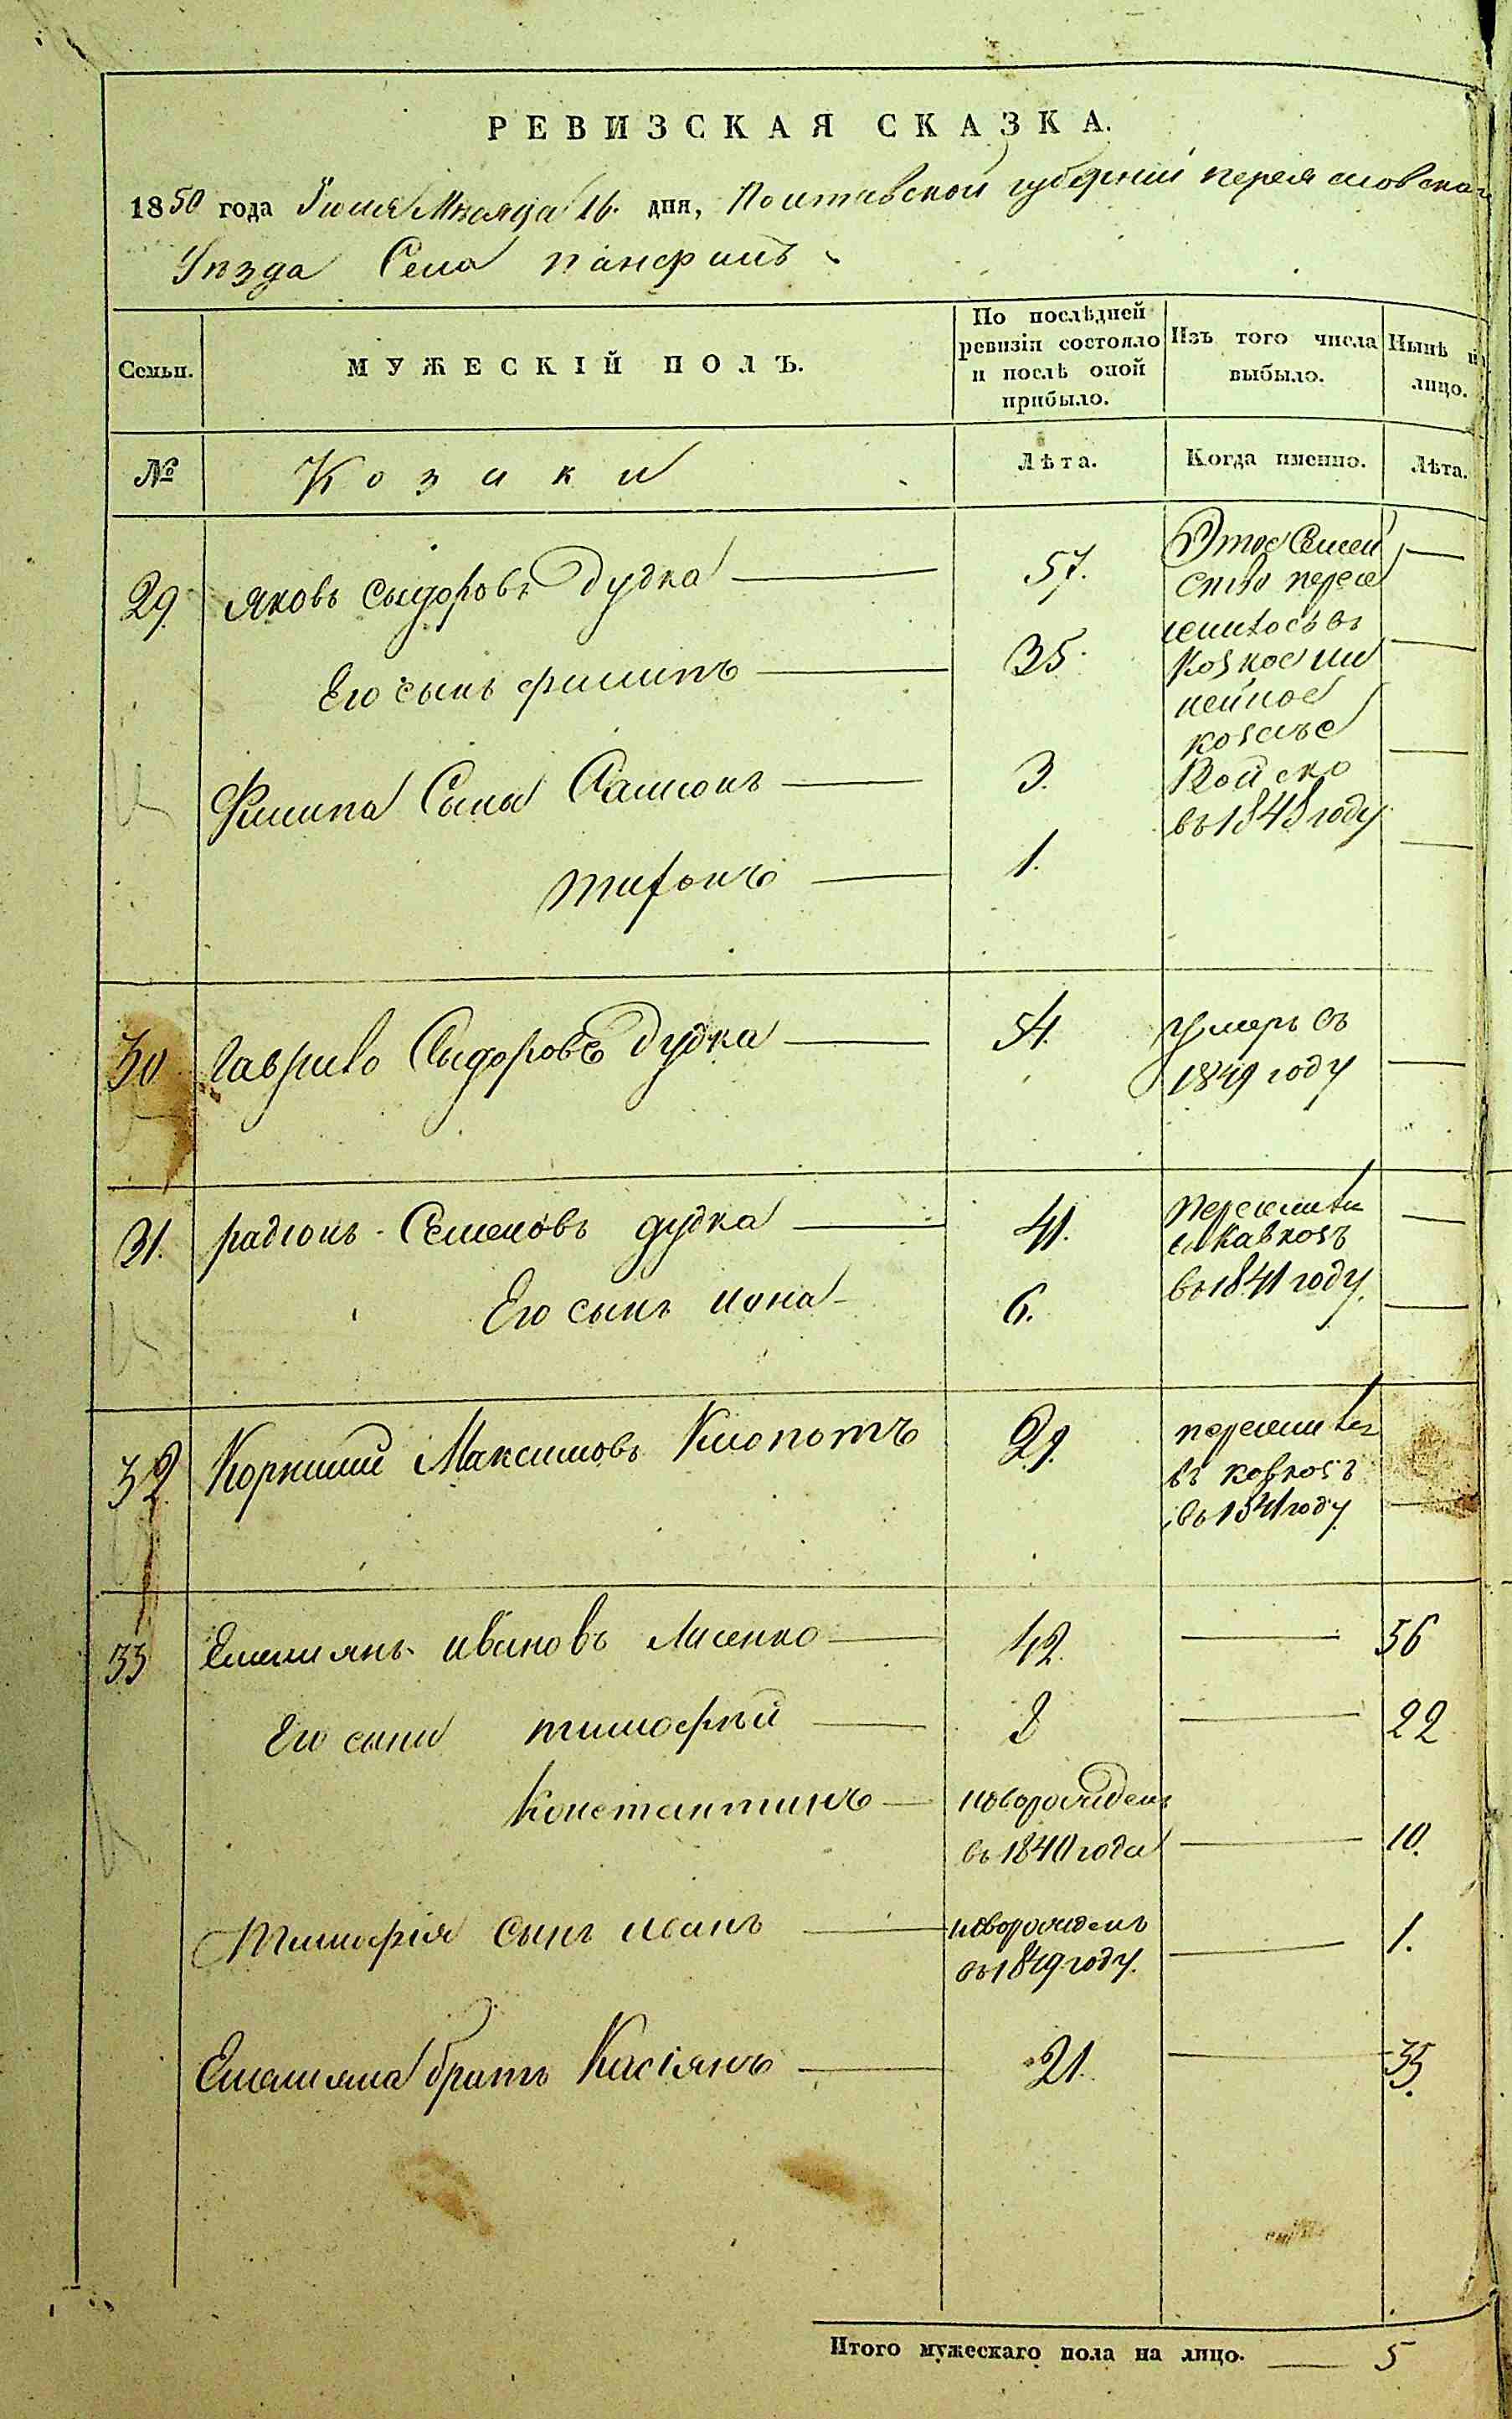 РЕВИЗСКАЯ СКАЗКА.
1850 года Іюля Мѣсяца 16. дня, Полтавской губерніи переясловскаго
Уѣзда Села панфилъ
Семьи.
МУЖЕСКІЙ ПОЛЪ.
По послѣдней ревизіи состояло и послѣ оной прибыло.
Изъ того числа выбыло.
Нынѣ на лицо.
№
Козаки
Лѣта.
Когда именно.
Лѣта.
29 яковъ сыдоровъ Дудка — 57. Этое Семей —
ство пересе
Его сынъ филипъ — 35. лилось въ —
Ковкое ли
нейное
козачье —
Филипа Сына Самсонъ — 3. Войско
въ 1848 году
тихонъ — 1. —
30 Гаврило Сыдоровъ Дудка — 54. умеръ въ
1849 году —
31. радіонъ Семеновъ дудка — 41. Переселил —
ся Кавкозъ
Его сынъ иона — 6. въ 1841 году. —
32. Корнилий Максимовъ Клопотъ 29. переселился
въ ковкозъ
въ 1841 году —
33 Емелиянъ ивановъ Лисенко — 42. — 56
Его сыни тимофѣй — 8 — 22
Констентинъ — новорожденъ
въ 1840 года — 10.
Тимофія сынъ иванъ — новорожденъ — 1.
въ 1849 году.
Емелияна братъ Касіянъ — 21. — 35.
Итого мужескаго пола на лицо. — 5